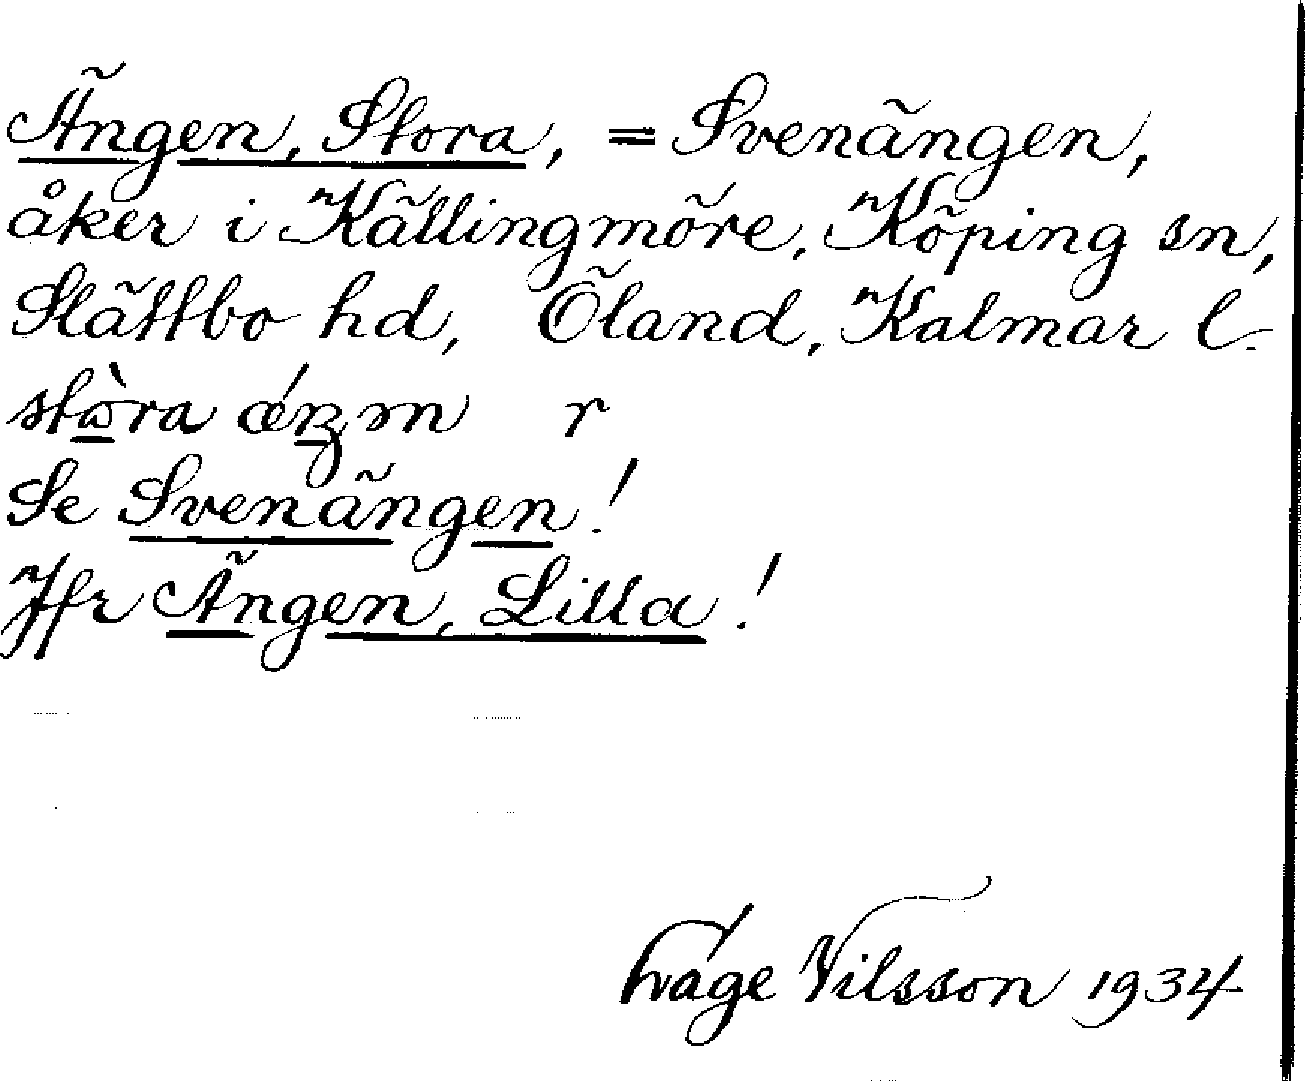 Ängen, Stora, = Svenängen,
åker i Källingmöre, Köping sn,
Slättbo hd, Öland, Kalmar l.
r
Se Svenängen!
Jfr Ängen, Lilla!
Nilsson 1934